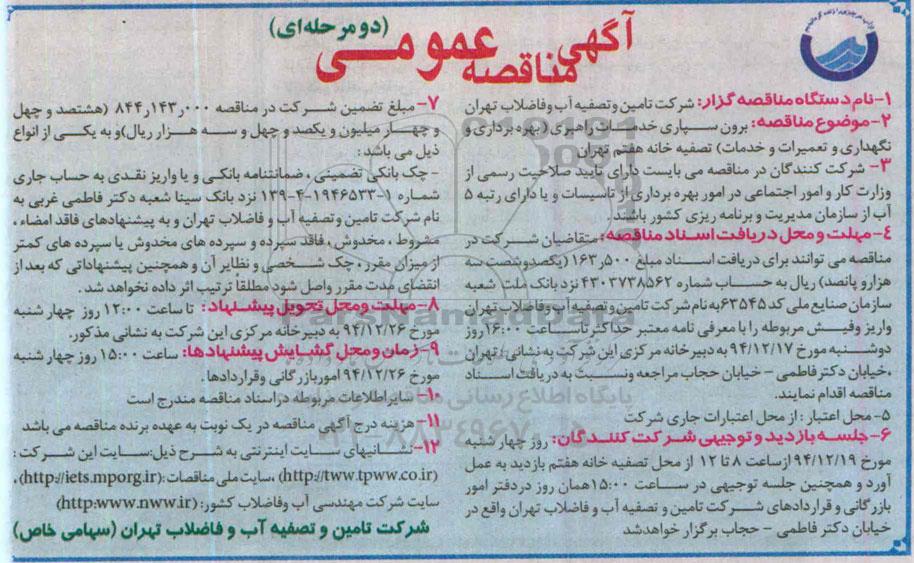 آگهی مناقصه عمومی
(دو مرحله‌ای)
۱- نام دستگاه مناقصه گزار: شرکت تامین و تصفیه آب و فاضلاب تهران
۲- موضوع مناقصه: برون سپاری خدمات راهبری (بهره برداری و
نگهداری و تعمیرات و خدمات) تصفیه خانه هفتم تهران
۳- شرکت کنندگان در مناقصه می بایست دارای تایید صلاحیت رسمی از
وزارت کار و امور اجتماعی در امور بهره برداری از تاسیسات و یا دارای رتبه ۵
آب از سازمان مدیریت و برنامه ریزی کشور باشند.
۴- مهلت و محل دریافت اسناد مناقصه: متقاضیان شرکت در
مناقصه می توانند برای دریافت اسناد مبلغ ۱۶۳٫۵۰۰ (یکصدو شصت سه
هزارو پانصد) ریال به حساب شماره ۴۳۰۳۷۳۸۵۶۲ نزد بانک ملت شعبه
سازمان صنایع ملی کد ۶۳۵۴۵ به نام شرکت تامین و تصفیه آب و فاضلاب تهران
واریز و فیش مربوطه را با معرفی نامه معتبر حداکثر تا ساعت ۱۶:۰۰ روز
دوشنبه مورخ ۹۴/۱۲/۱۷ به دبیرخانه مرکزی این شرکت به نشانی: تهران
،خیابان دکتر فاطمی - خیابان حجاب مراجعه ونسبت به دریافت اسناد
مناقصه اقدام نمایند.
۵- محل اعتبار: از محل اعتبارات جاری شرکت
۶- جلسه بازدید و توجیهی شرکت کنندگان: روز چهار شنبه
مورخ ۹۴/۱۲/۱۹ از ساعت ۸ تا ۱۲ از محل تصفیه خانه هفتم بازدید به عمل
آورد و همچنین جلسه توجیهی در ساعت ۱۵:۰۰ همان روز در دفتر امور
بازرگانی و قراردادهای شرکت تامین و تصفیه آب و فاضلاب تهران واقع در
خیابان دکتر فاطمی - حجاب برگزار خواهد شد
۷- مبلغ تضمین شرکت در مناقصه ۸۴۴٫۱۴۳٫۰۰۰ (هشتصد و چهل
و چهار میلیون و یکصد و چهل و سه هزار ریال) و به یکی از انواع
ذیل می باشد:
- چک بانکی تضمینی، ضمانتنامه بانکی و یا واریز نقدی به حساب جاری
شماره ۱-۱۹۴۶۵۳۳-۴-۱۳۹ نزد بانک سینا شعبه دکتر فاطمی غربی به
نام شرکت تامین و تصفیه آب و فاضلاب تهران و به پیشنهادهای فاقد امضاء ،
مشروط ، مخدوش ، فاقد سپرده و سپرده های مخدوش یا سپرده های کمتر
از میزان مقرر، چک شخصی و نظایر آن و همچنین پیشنهاداتی که بعد از
انقضای مدت مقرر واصل شود مطلقا ترتیب اثر داده نخواهد شد.
۸- مهلت و محل تحویل پیشنهاد: تا ساعت ۱۲:۰۰ روز چهار شنبه
مورخ ۹۴/۱۲/۲۶ به دبیر خانه مرکزی این شرکت به نشانی مذکور.
۹- زمان و محل گشایش پیشنهادها: ساعت ۱۵:۰۰ روز چهار شنبه
مورخ ۹۴/۱۲/۲۶ امور بازرگانی وقراردادها.
۱۰- سایر اطلاعات مربوطه در اسناد مناقصه مندرج است
۱۱- هزینه درج آگهی مناقصه در یک نوبت به عهده برنده مناقصه می باشد
۱۲- نشانیهای سایت اینترنتی به شرح ذیل: سایت این شرکت:
(http://tww.tpww.co.ir) ،سایت ملی مناقصات: (http://iets.mporg.ir)،
سایت شرکت مهندسی آب وفاضلاب کشور: (http:www.nww.ir)
شرکت تامین و تصفیه آب و فاضلاب تهران (سهامی خاص)
ParsNamadData
پایگاه اطلاع رسانی
۰۲۱-۸۸۳۴۹۶۷۰